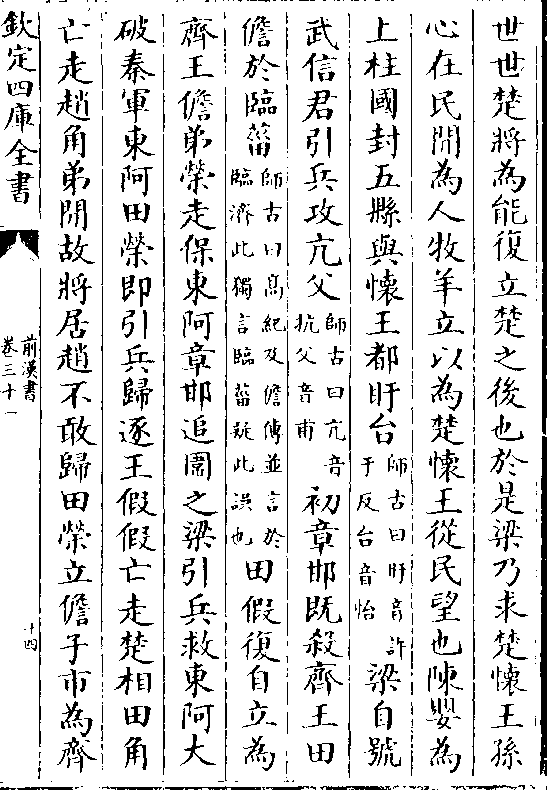 世世楚將為能復立楚之後也於是梁乃求楚懷王孫
心在民間為人牧羊立以為楚懷王從民望也陳嬰為
上柱國封五縣與懷王都盱台師古曰盱音許于反台音怡梁自號
武信君引兵攻亢父師古曰亢音抗父音甫初章邯既殺齊王田
儋於臨菑師古曰高紀及儋傳並言於臨濟此獨言臨菑疑此誤也田假復自立為
齊王儋弟榮走保東阿章邯追圍之梁引兵救東阿大
破秦軍東阿田榮即引兵歸逐王假假亡走楚相田角
亡走趙角弟間故將居趙不敢歸田榮立儋子市為齊
欽定四庫全書
前漢書
卷三十一
十四